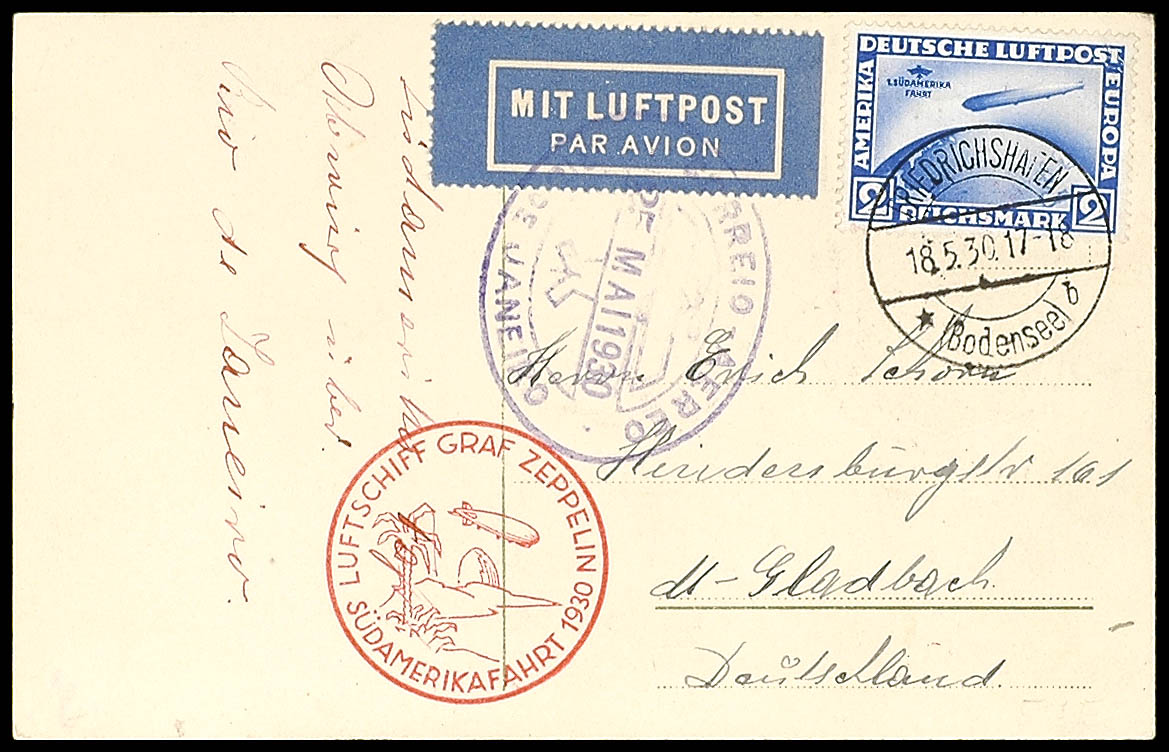 MIT LUFTPOST
PAR AVION
DEUTSCHE LUFTPOST
AMERIKA
EUROPA
1. SÜDAMERIKA
FAHRT
2 REICHSMARK 2
FRIEDRICHSHAFEN
18.5.30.17-18
(Bodensee) b
CORREIO AEREO
DE MAI 1930
DE JANEIRO
LUFTSCHIFF GRAF ZEPPELIN
SÜDAMERIKAFAHRT 1930
Südamerika
über
Rio de Janeiro.
Herrn Erich Schorn
Hindenburgstr 161
M-Gladbach
Deutschland.